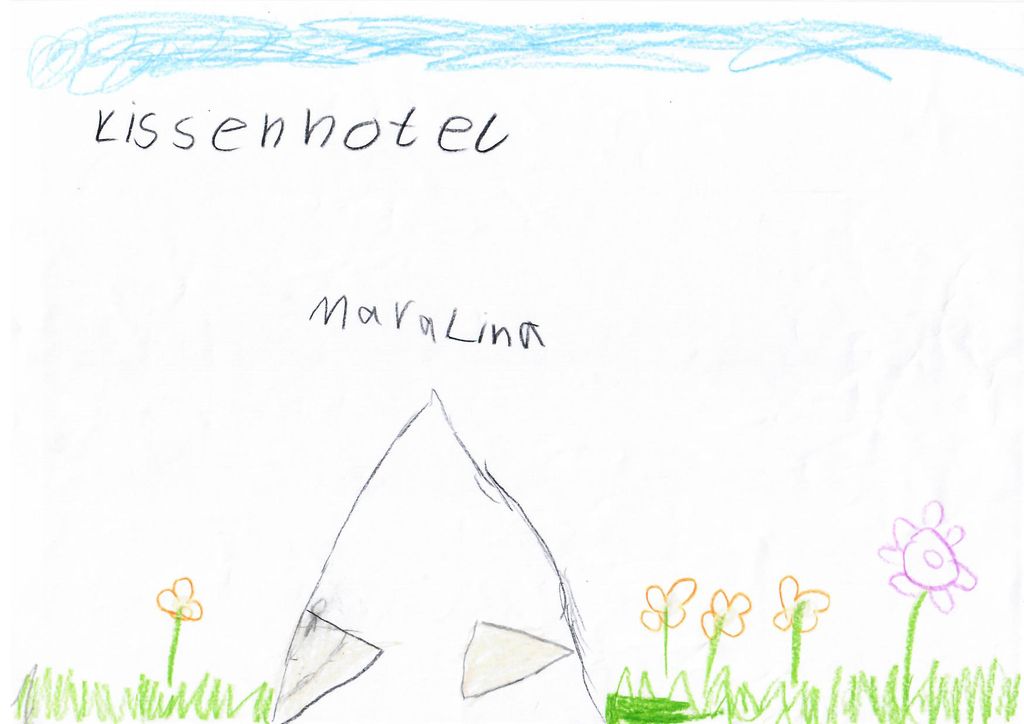 Kissenhotel
MaraLina